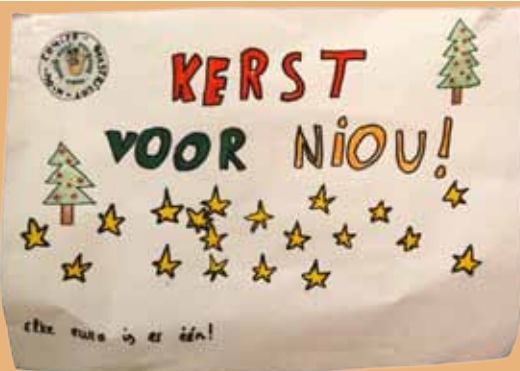 KERST
VOOR NiOU!
elke euro is er één!